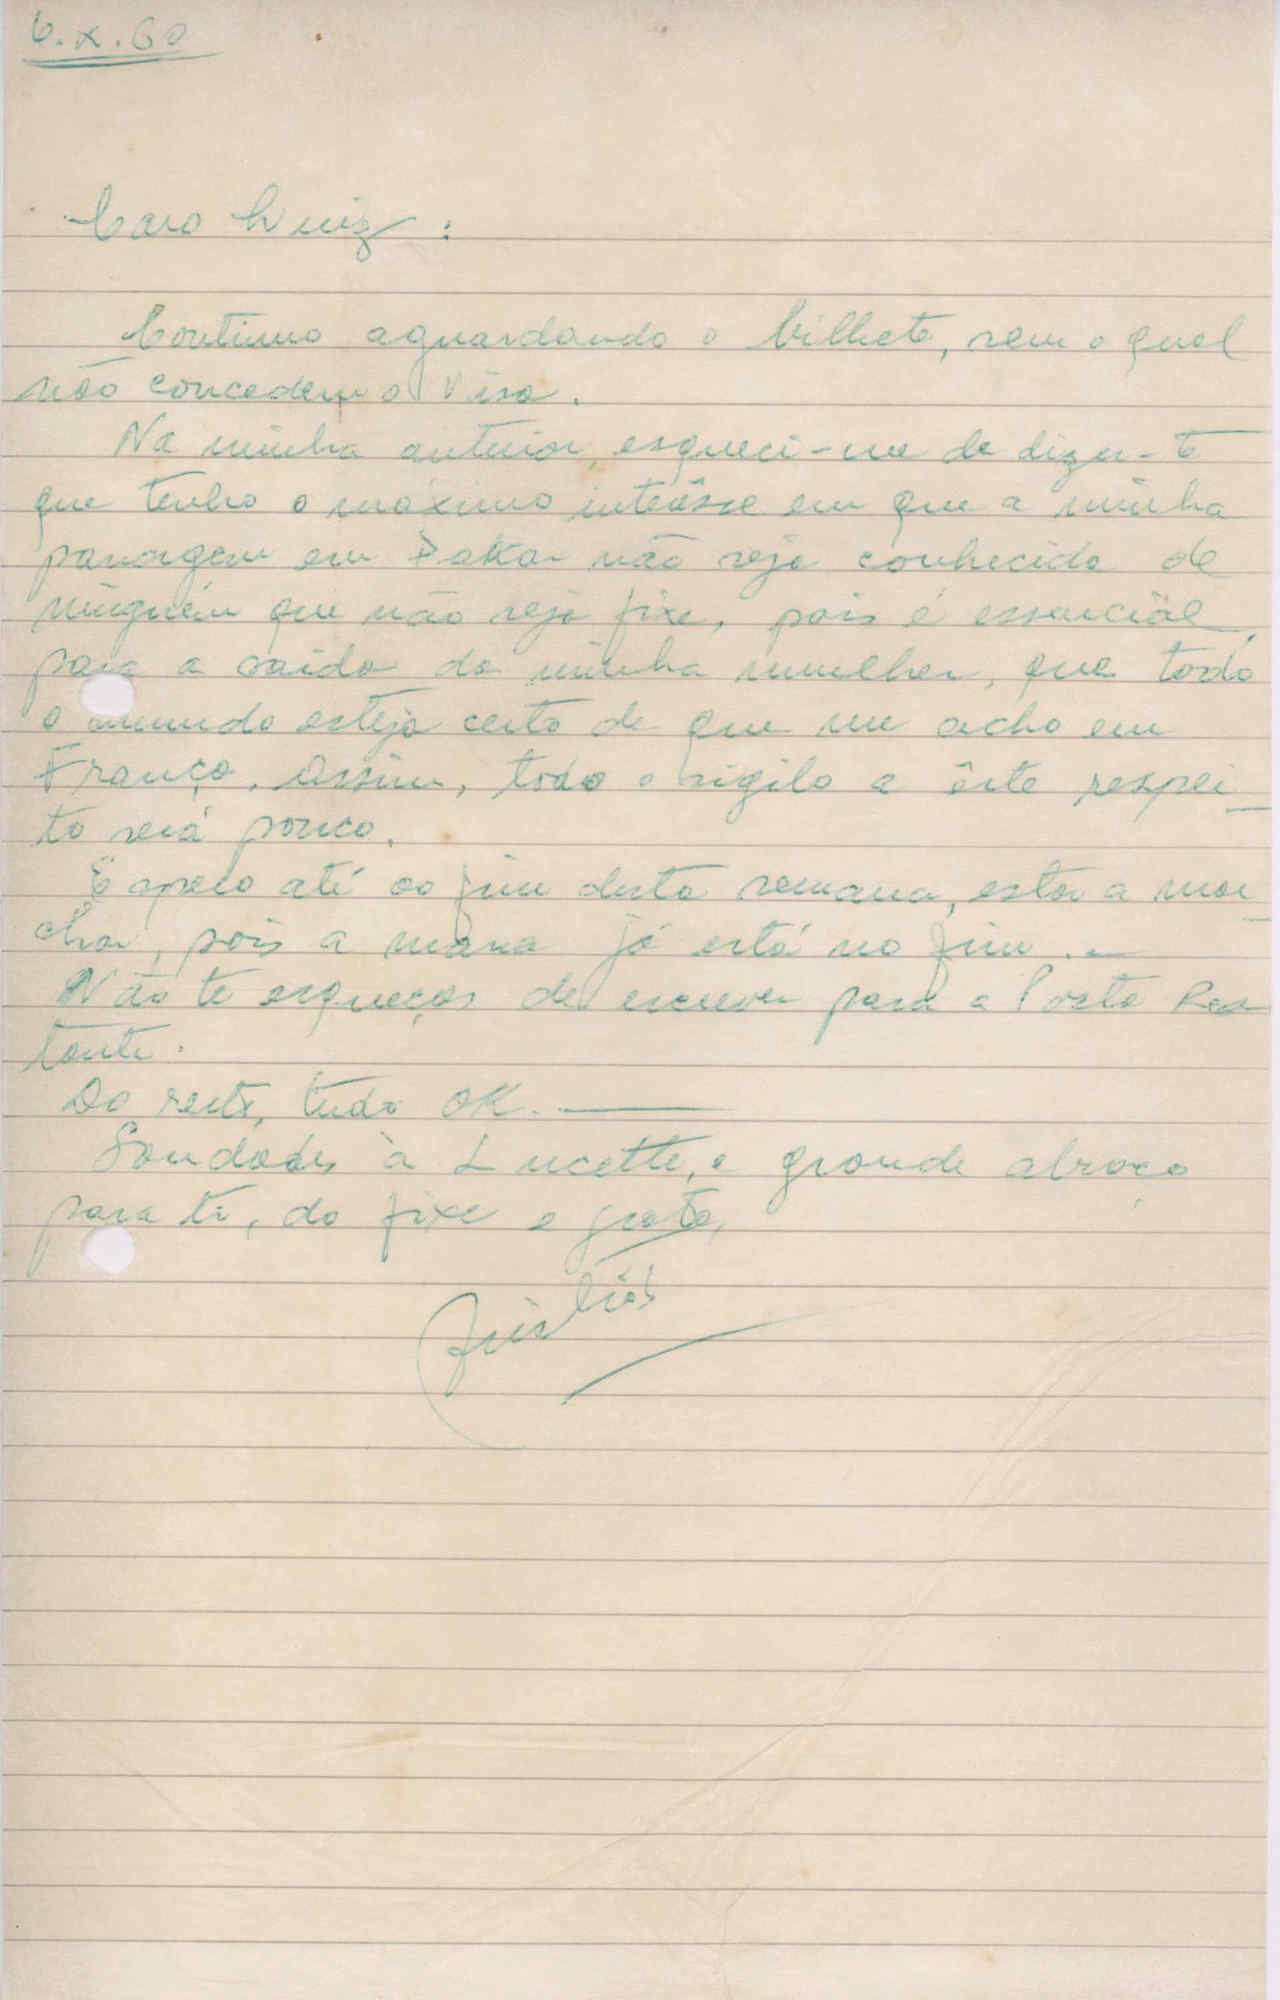 6.X.60
Caro Luiz:
Continuo aguardando o bilhete, sem o qual
não concedem o Visa.
Na minha anterior, esqueci-me de dizer-te
que tenho o máximo interêsse em que a minha
passagem em Dakar não seja conhecida de
ninguém que não seja fixe, pois é essencial,
para a saída da minha mulher, que todo
o mundo esteja certo de que me acho em
França. Assim, todo o sigilo a êste respei-
to será pouco.
Espero até ao fim desta semana, estar a mar-
char, pois a massa já está no fim. –
Não te esqueças de escrever para a Posta Res-
tante.
Do resto, tudo OK. ——
Saudades à Lucette, e grande abraço
para ti, do fixe e grato,